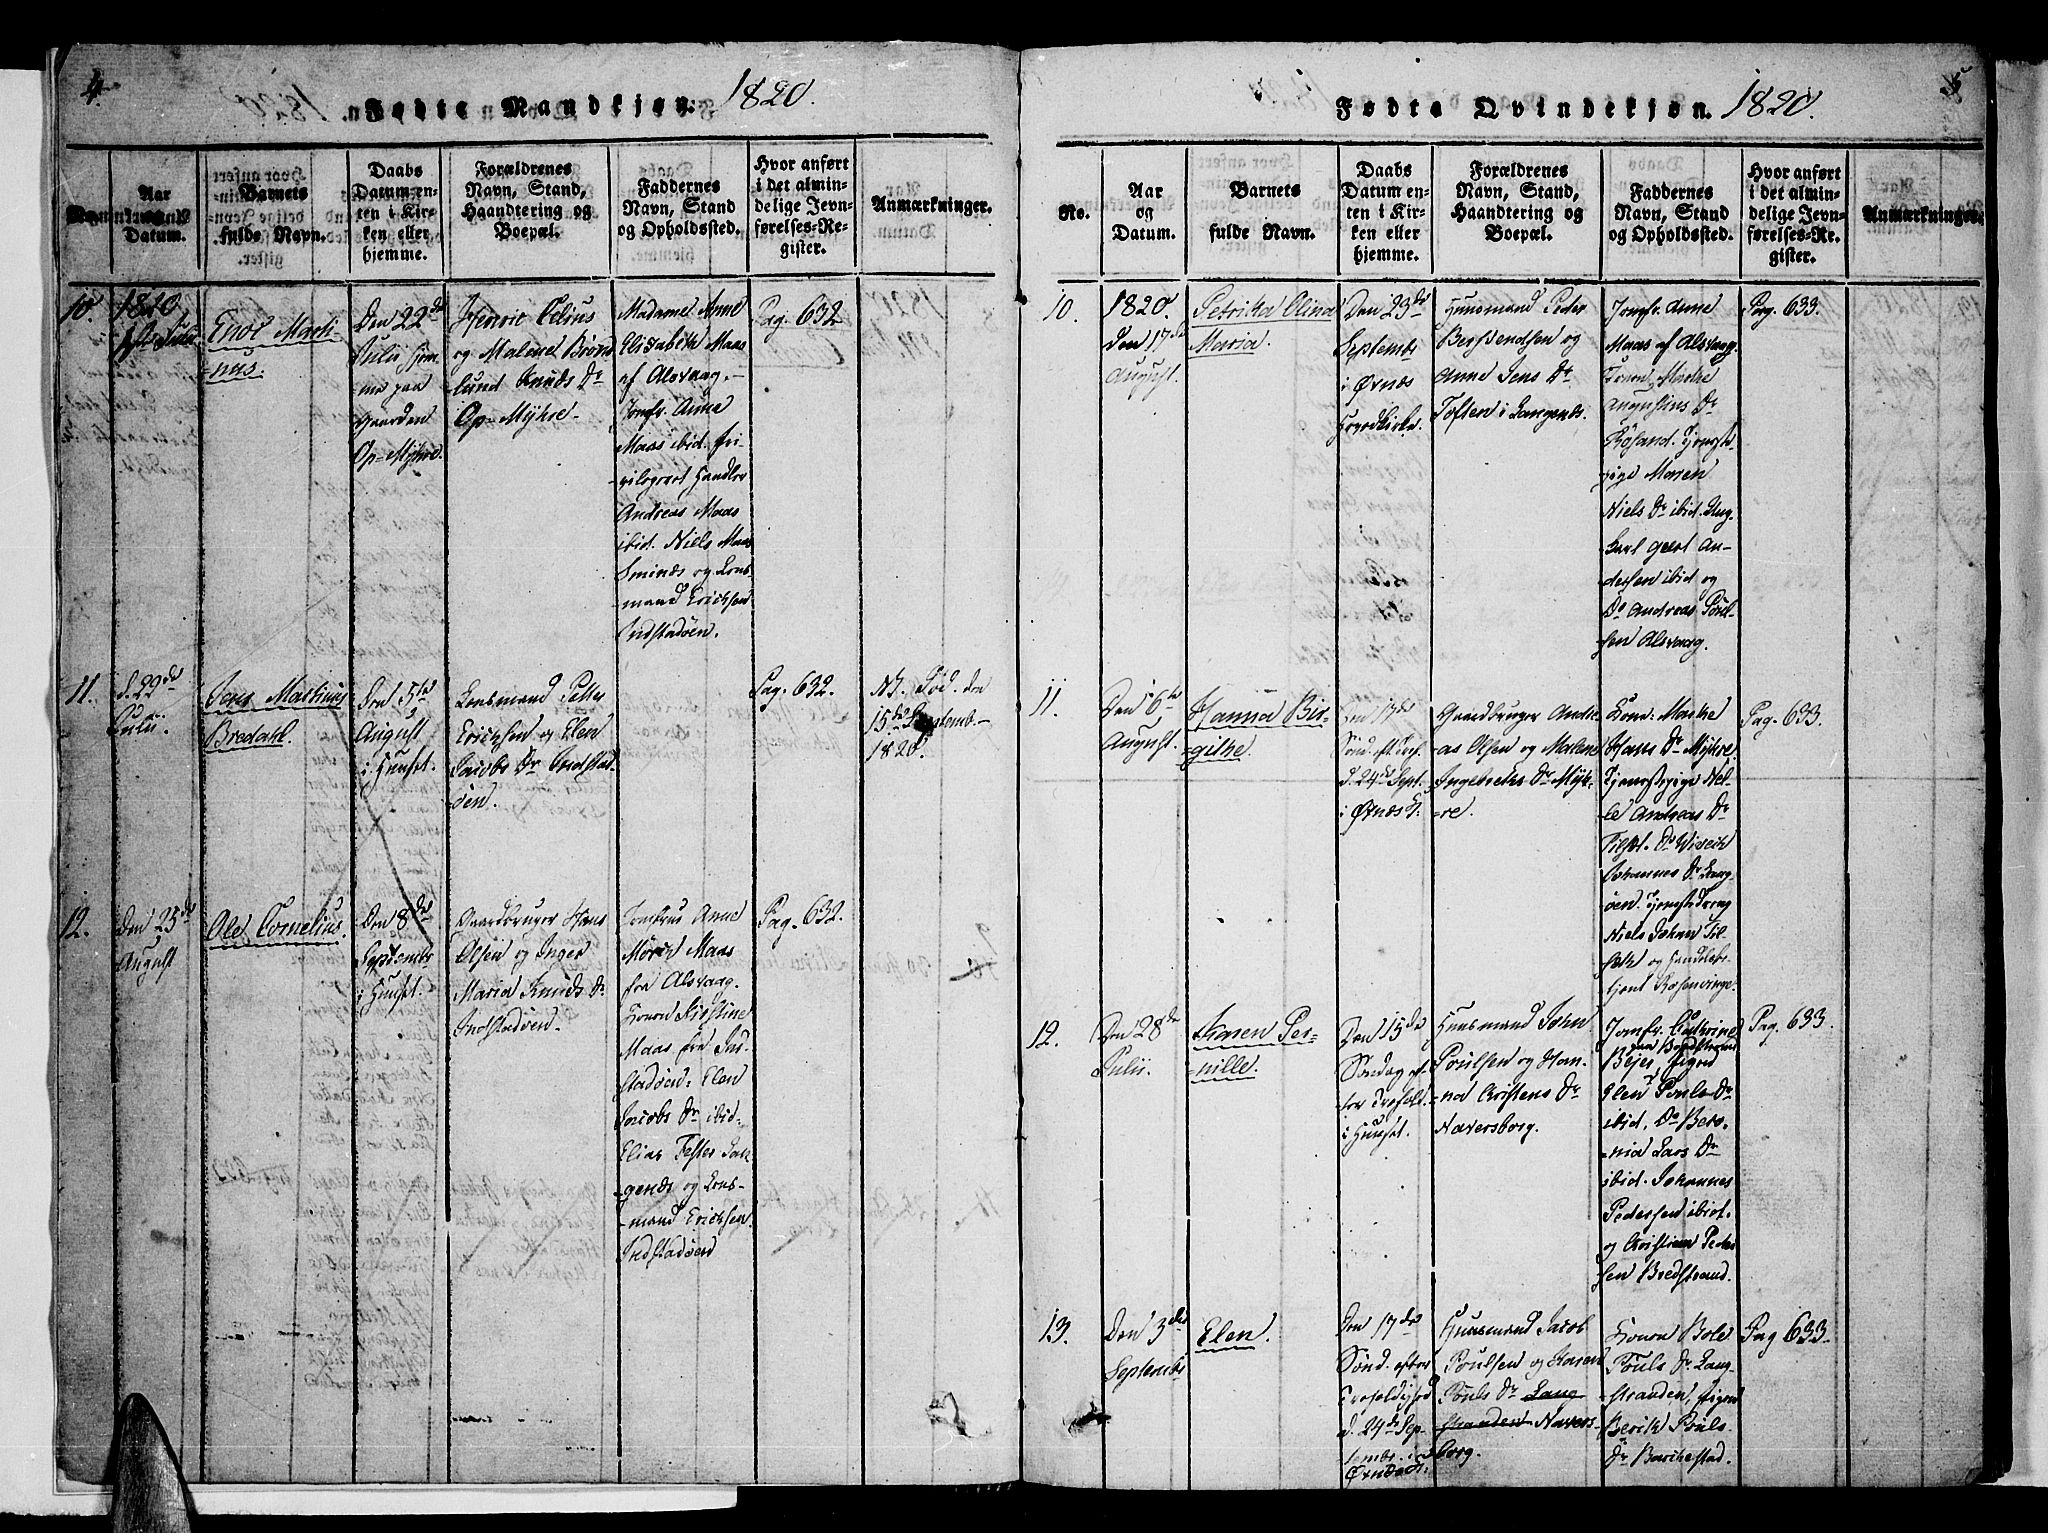 4.
Fødte Mandkjøn. 1820.
No.
Aar
og
Datum.
Barnets
fulde Navn.
Daabs
Datum en-
ten i Kir-
ken eller
hjemme.
Forældrenes
Navn, Stand,
Haandtering og
Boepæl.
Faddernes
Navn, Stand
og Opholdssted.
Hvor anført
i det almin-
delige Jevn-
førelses-Re-
gister.
Anmærkninger.
10.
1820
Juli
Enor Marti-
-nus.
Den 22de
Julii hjem-
me paa
Gaarden
Op-Myhre.
Henric Celius
og Malene Brøn-
lund Knuds Dr
Op-Myhre-
Madame Anne
Elisabeth Maas
af Alsvaag.-
Jomfr. Anne
Maas ibid. Pri-
vilegeret Handler
Andreas Maas
ibid. Niels Maas
Sminæs og Lens-
mand Erichsen
Indstadøen.
Pag. 632
11.
d. 29de
Julii.
Jens Martinus
Bredahl.
Den 5te
August
i Huuset.
Lensmand Petter
Erichsen og Elen
Jacobs Dr Indstad-
øen.
Pag. 632.
Nb. Død. den
15de Septemb.-
1820.
12.
Den 25de
August
Ole Cornelius.
Den 8de
Septembr
i Huuset.
Gaardbruger Hans
Olsen og Inger
Maria Knuds Dr
Indstadøen.
Jomfrue Anne
Maas
fra Alsvaag.
Konen Kirstine
Maas fra Ind-
stadøen. Elen
Jacobs Dr ibid.
Elias Tofter Lan-
-genes og Lens-
-mand Erichsen
Indstadøen
Pag. 632.
5
Fødte Qvindekjøn. 1820.
No.
Aar
og
Datum.
Barnets
fulde Navn.
Daabs
Datum en-
ten i Kir-
ken eller
hjemme.
Forældrenes
Navn, Stand,
Haandtering og
Boepæl.
Faddernes
Navn, Stand
og Opholdssted.
Hvor anført
i det almin-
delige Jevn-
førelses-Re-
gister.
Anmærkninger.
10.
1820.
den 17de
August.
Petrikka Olina
Maria.
Den 23de
Septembr
i Øxnæs
Hovedkirke.
Huusmand Peder
Berhendsen og
Anne Jens Dr
Toften i Langenes.
Jomfr. Anne
Maas af Alsvaag.
Konen Marthe
Augustinus Dr
Røsand. Tjeneste-
pige Maren
Niels Dr ibid. Ung-
-karl Geert An-
dersen ibid og
Do Andreas Poul-
sen Alsvaag.
Pag. 633.
11.
Den 16de
August.
Hanna Bir-
-githe.
Den 17de
Sønd. eft. Tref.
d. 24de Sept.
i Øxnæs K:
Gaardbruger Andre-
as Olsen og Malene
Ingebreths Dr Myh-
-re.
Kone Marthe
Hans Dr Myhre.
Tjenestepige Nil-
le Andreas Dr
Johannes Dr Lang-
øen. Tjenestedreng
Niels Johns Til-
og Handels-
tjent Rosenvinge.
Pag. 633.
12.
Den 28de
Julii.
Karen Per-
-nille.
Den 15de
Søndag ef-
ter Trefold.
i Huuset.
Huusmand John
Poulsen og Han-
na Cristens Dr
Naversborg.
Jomfr. Cathrine
Bejer Bredstrand
Pigen
Elen Pouls Dr
ibid. Do Bero-
-nia Lars Dr
ibid. Johannes
Pedersen ibid.
og Cristian Peder-
sen Bredstrand.
Pag. 633.
13.
Den 3die
Septembr
Elen.
Den 17de
Sønd. efter
Trefoldighed
d. 24de Sep-
tembr. i
Øxnæs K:
Huusmand Jacob
Poulsen og Karen
Pouls Dr Lang-
stranden Navers-
borg.
Konen Bole
Pouls Dr Lang-
stranden, Pigen
Berith Pouls
Dr Barkestad.
Pag 633.